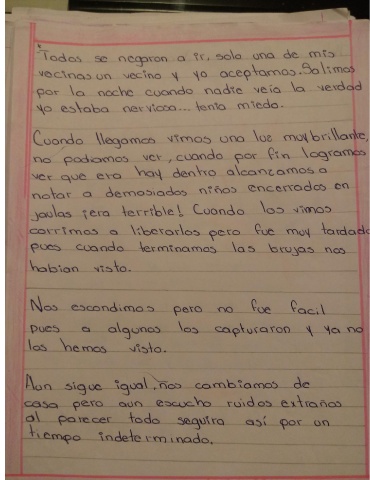 Todos se negaron a ir, solo una de mis
vecinas un vecino y yo aceptamos. Salimos
por la noche cuando nadie veía la verdad
yo estaba nerviosa... tenía miedo.
Cuando llegamos vimos una luz muy brillante,
no podíamos ver, cuando por fin logramos
ver que era hay dentro alcanzamos a
notar a demasiados niños encerrados en
jaulas ¡era terrible! Cuando los vimos
corrimos a liberarlos pero fue muy tardado
pues cuando terminamos las brujas nos
habían visto.
Nos escondimos pero no fue facil
pues a algunos los capturaron y ya no
los hemos visto.
Aun sigue igual, nos cambiamos de
casa pero aun escucho ruidos extraños
al parecer todo seguira así por un
tiempo indeterminado.